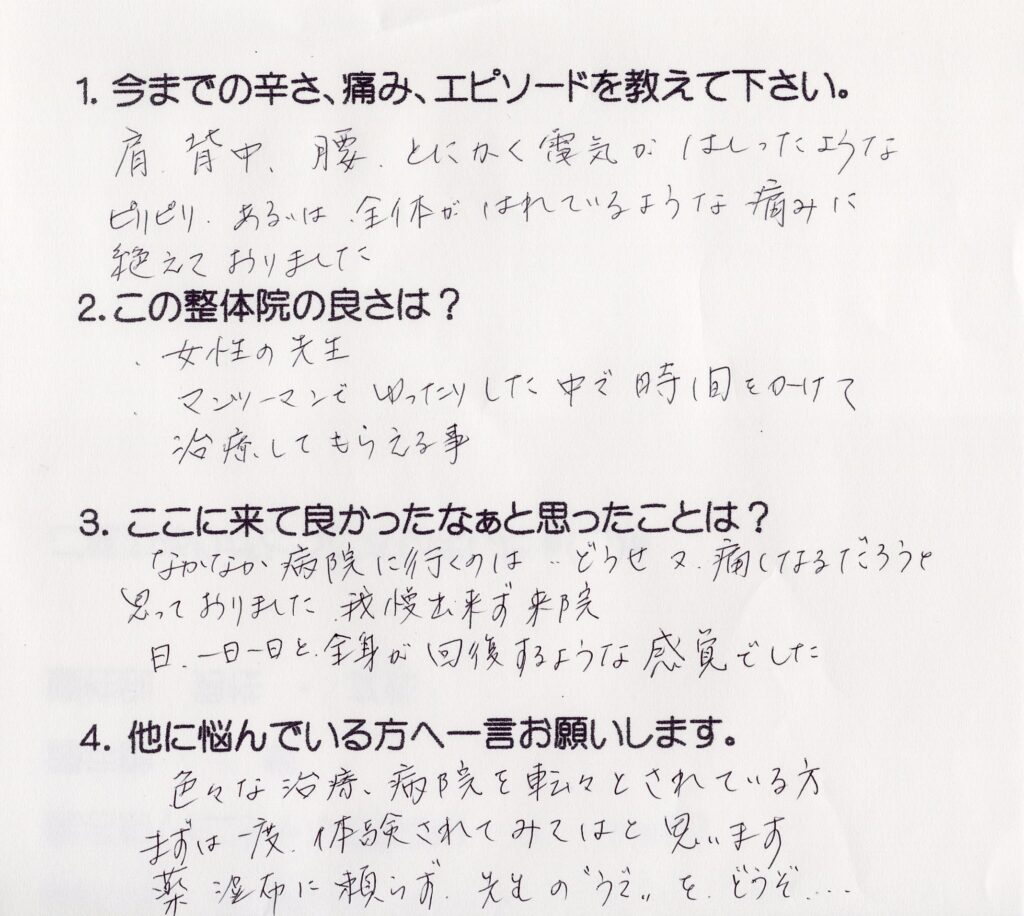 1. 今までの辛さ、痛み、エピソードを教えて下さい。
肩、背中、腰、とにかく電気がはしったような
ピリピリ、あるいは、全体がはれているような痛みに
絶えておりました
2. この整体院の良さは？
・女性の先生
・マンツーマンでゆったりした中で時間をかけて
治療してもらえる事
3. ここに来て良かったなぁと思ったことは？
なかなか病院に行くのは‥どうせ又、痛くなるだろうと
思っておりました、我慢出来ず来院
日、一日一日と、全身が回復するような感覚でした
4. 他に悩んでいる方へ一言お願いします。
色々な治療、病院を転々とされている方
まずは一度、体験されてみてはと思います
薬 湿布に頼らず、先生の"うで"を、どうぞ…